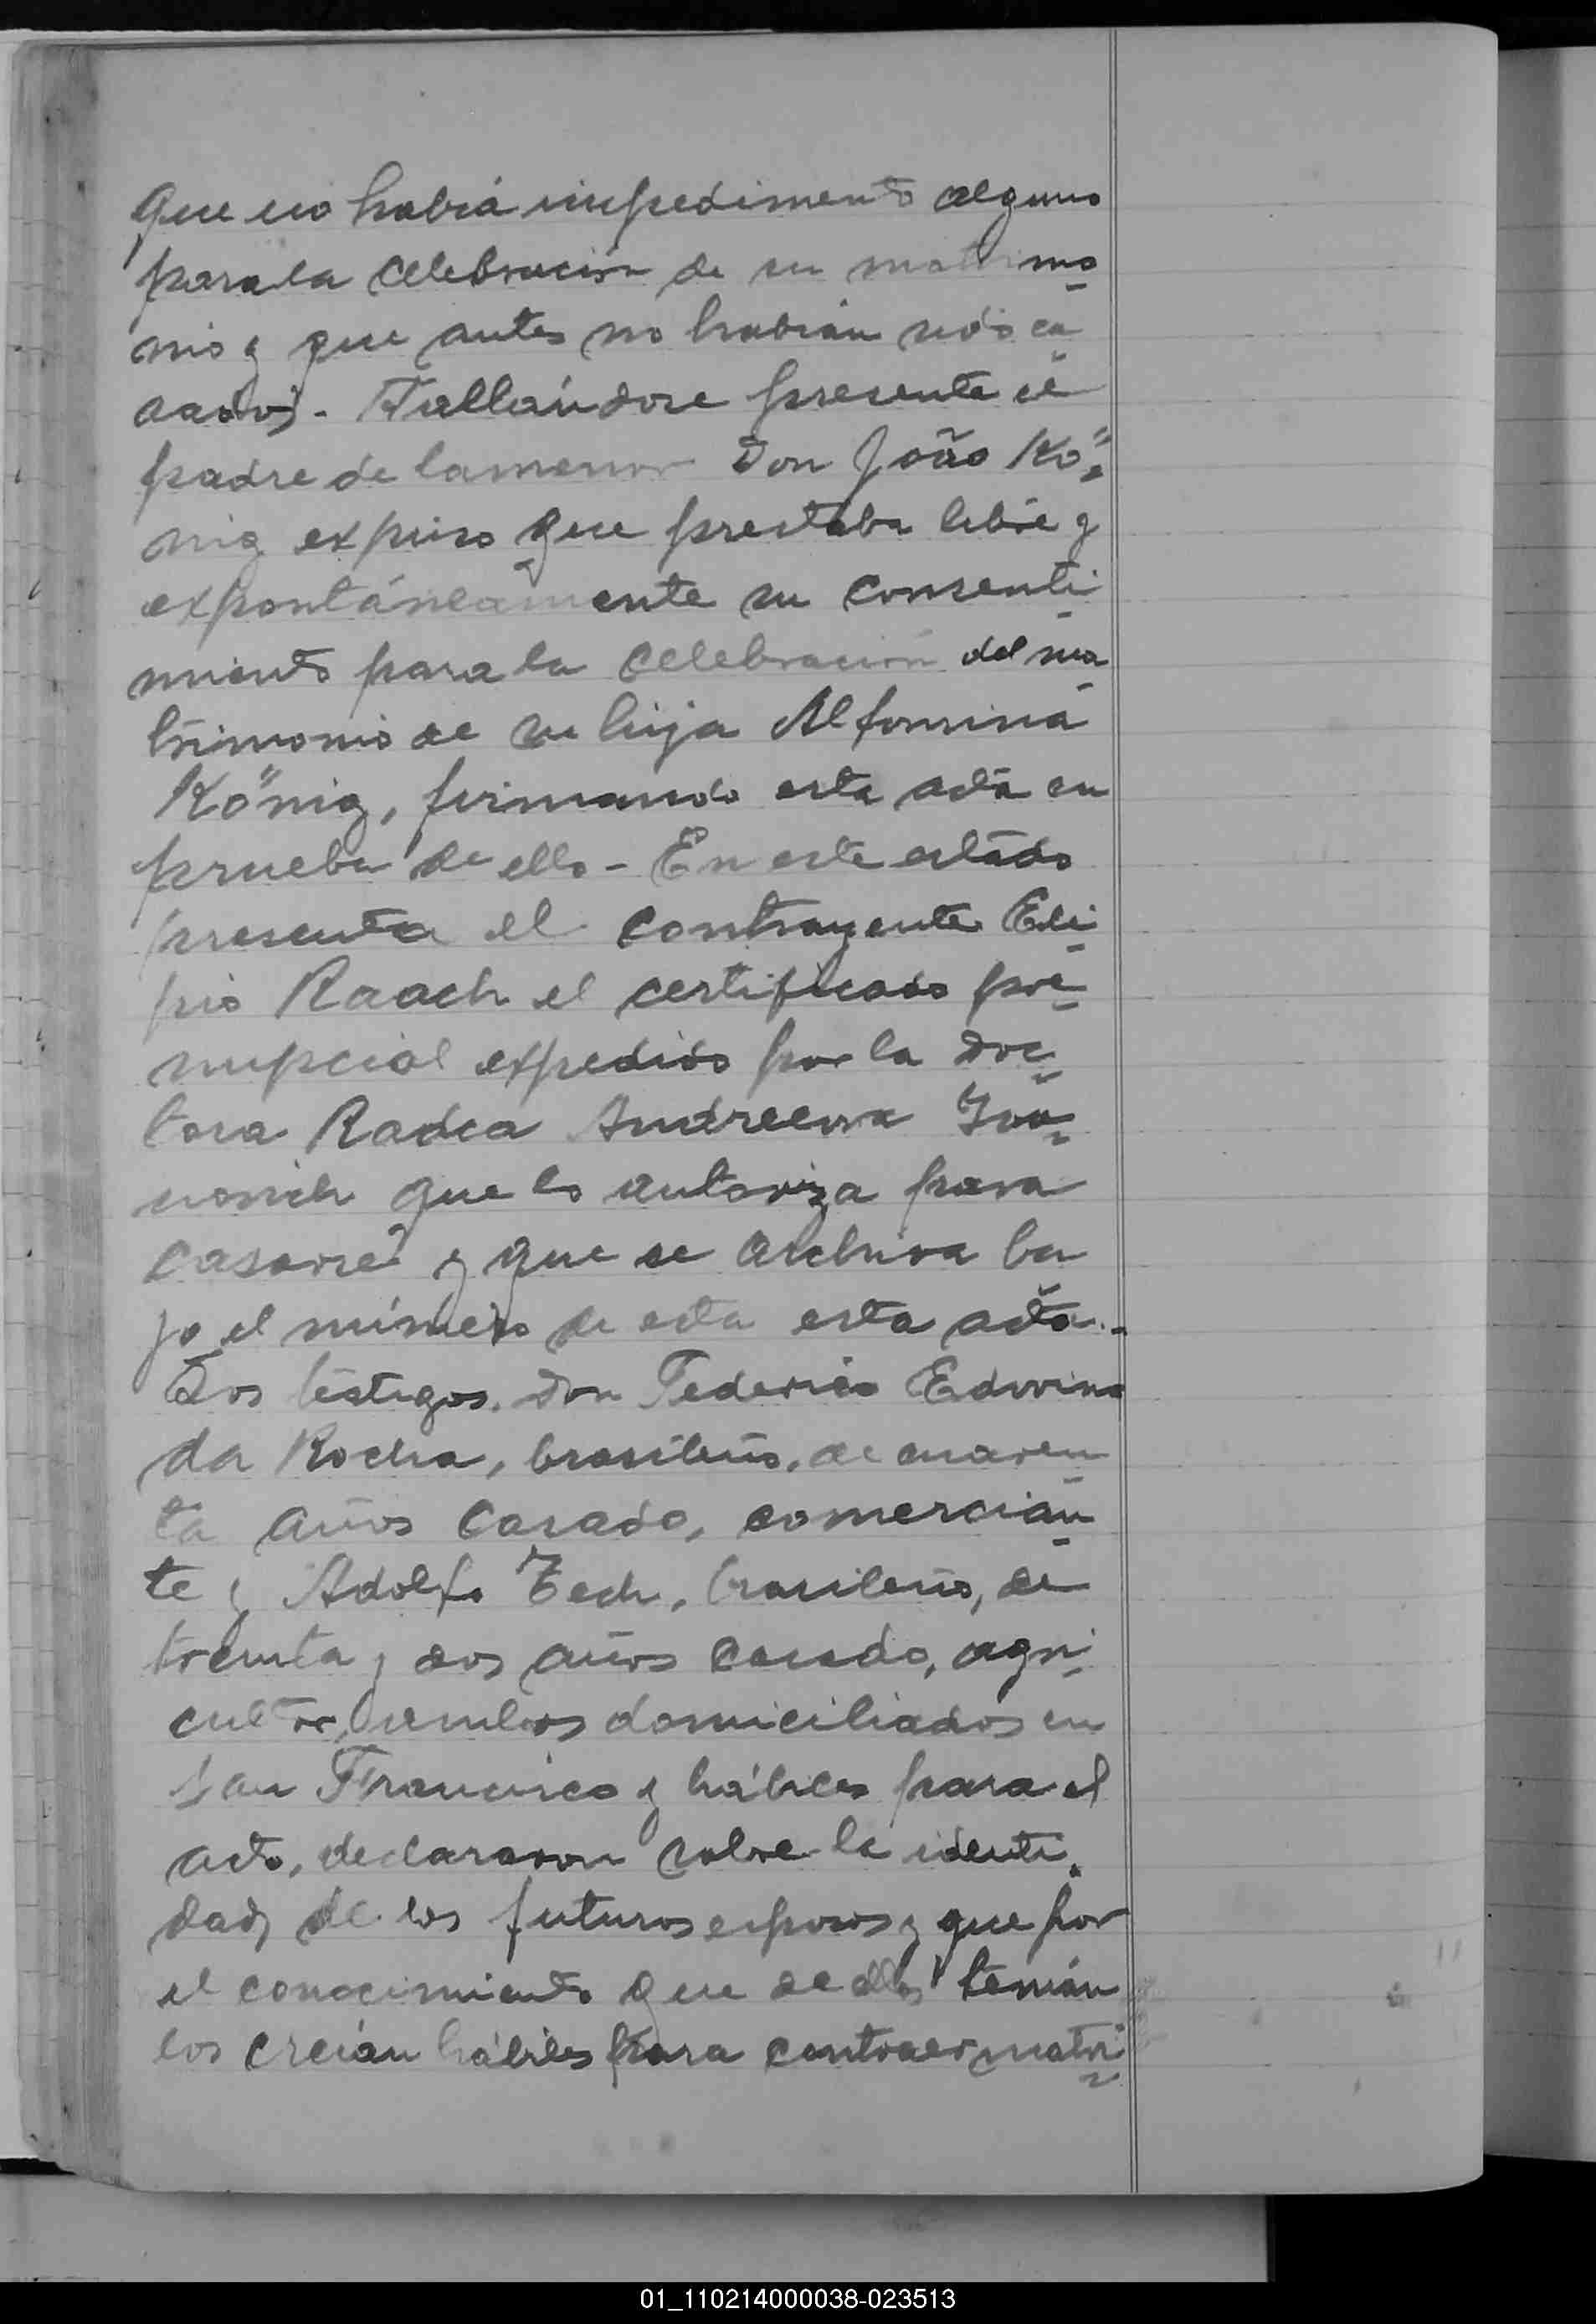 que no había impedimento alguno
para la celebración de su matrimo
nio y que antes no habían sido ca
sados. Hallándose presente el
padre de la menor Don João Kö
nig expuso que prestaba libre y
expontáneamente su consenti
miento para la celebración del ma
trimonio de su hija Alfonsina
König, firmando esta acta en
prueba de ello - En este estado
presenta el contrayente Eli
pio Raach el certificado pre
nupcial expedido por la Doc
tora Radca Andreewa Iva
novich que lo autoriza para
casarse y que se archiva ba
jo el número de esta esta acta.-
Los testigos. Don Federico Edwino
da Rocha, brasileño, de cuaren
ta años casado, comercian
te y Adolfo Zech, brasileño, de
treinta y dos años casado, agri
cultor, ambos domiciliados en
San Francisco y hábiles para el
acto, declararon sobre la identi
dad de los futuros esposos y que por
el conocimiento que de ellos tenían
los creían hábiles para contraer matri
01_110214000038-023513